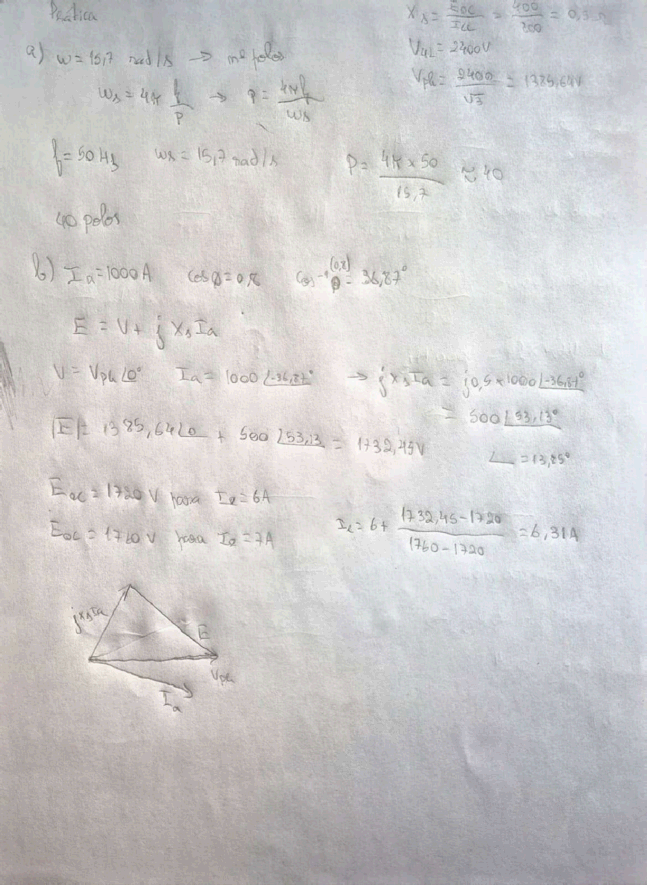 Prática
Xs = Eoc/Icc = 400/800 = 0,5 Ω
a) ω = 15,7 rad/s → nº polos
VLL = 2400V
Vph = 2400/√3 = 1385,64V
ωs = 4π f/p → p = 4πf/ωs
f = 50 Hz ωs = 15,7 rad/s P = 4π × 50/15,7 ≈ 40
40 polos
b) Ia = 1000 A cos φ = 0,8 cos⁻¹ (0,8) φ = 36,87°
E = V + j Xs Ia
V = Vph ∠0° Ia = 1000 ∠-36,87° → j Xs Ia = j0,5 × 1000 ∠-36,87°
= 500 ∠53,13°
|E| = 1385,64 ∠0 + 500 ∠53,13 = 1732,45V
∠ = 13,85°
Eoc = 1720 V para Ie = 6A
Eoc = 1760 V para Ie = 7A
Ie = 6 + 1732,45-1720/1760-1720 = 6,31A
jXsIa
E
Vph
Ia